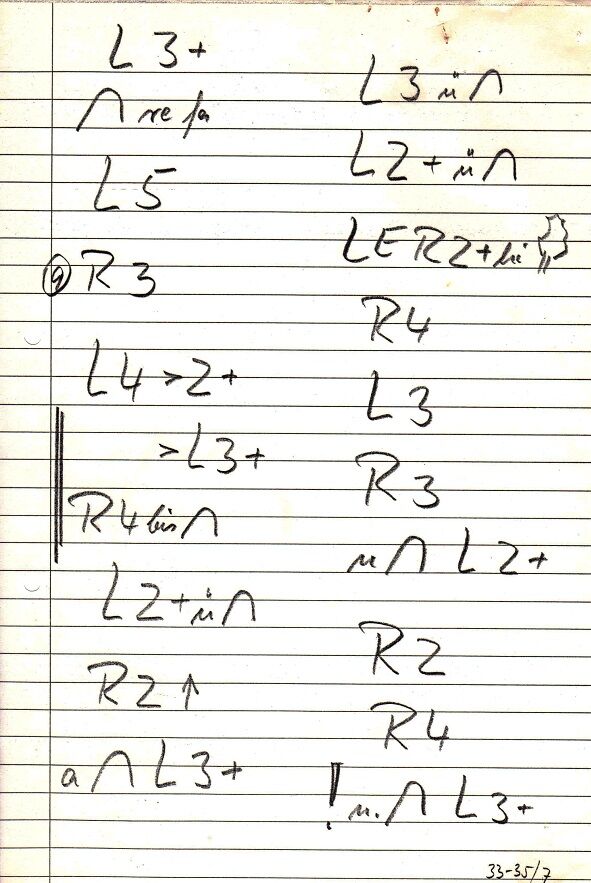 L 3+
⋂ re fa
L5
9 R 3
L4 > 2+
> L3+
R4 bis ⋂
L2+ ü ⋂
R2 ↑
a ⋂ L3+
L 3 ü ⋂
L2+ ü ⋂
LER2+
R4
L3
R3
u ⋂ L2+
R2
R4
! u. ⋂ L3+
33-35/7